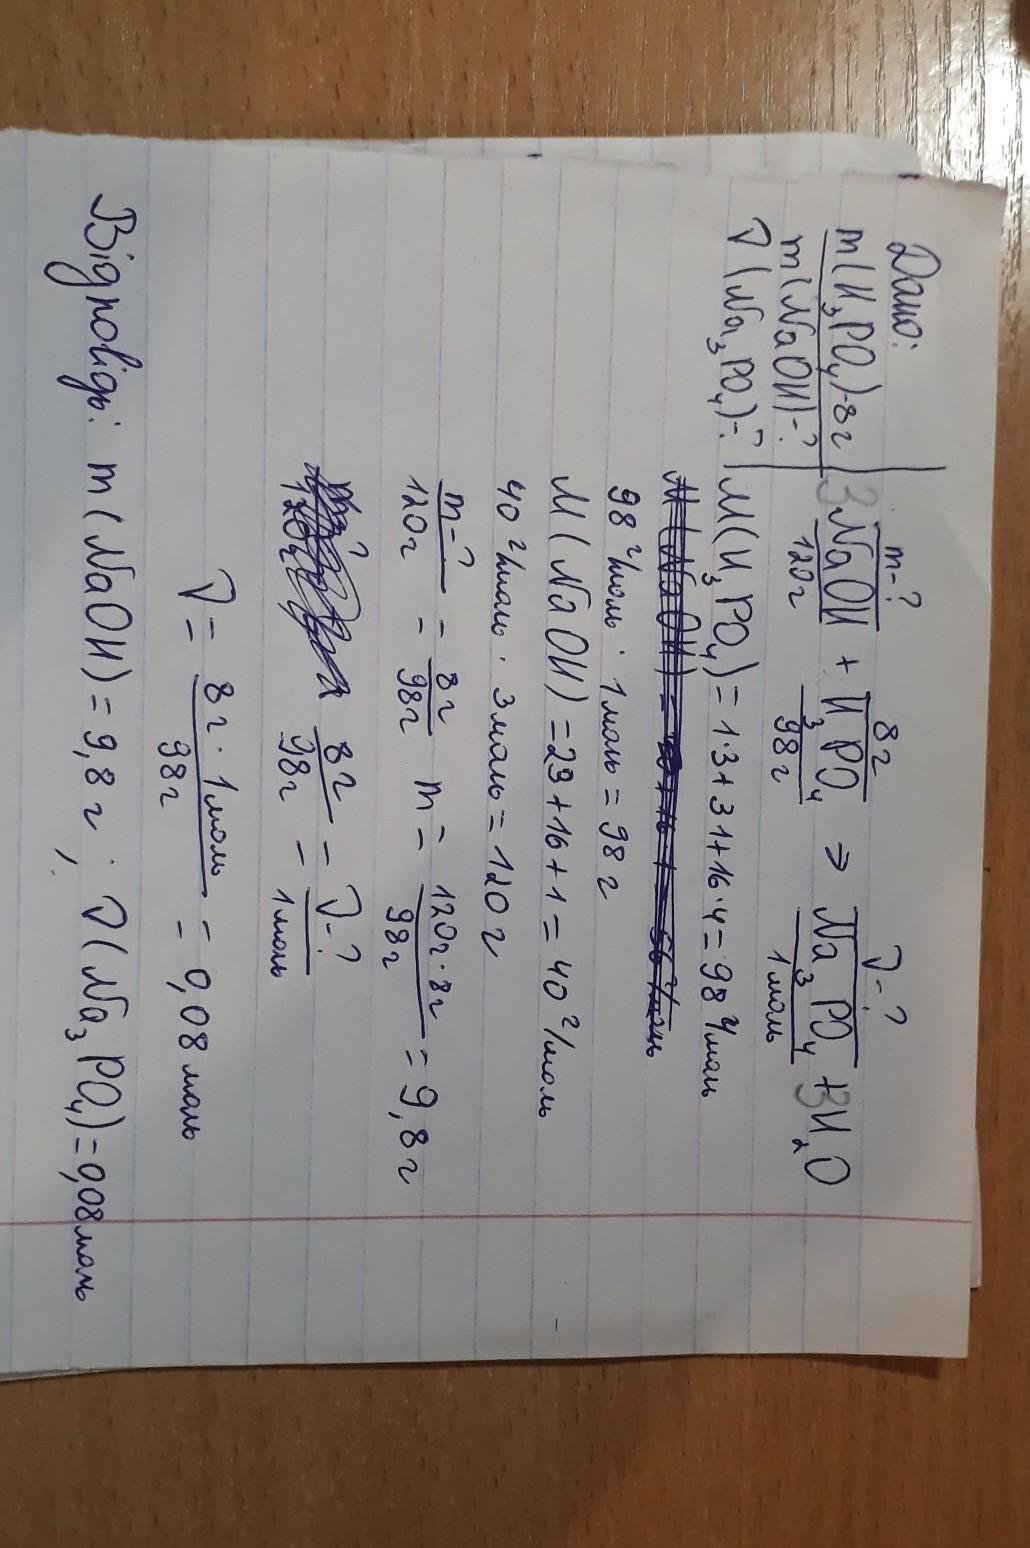 Дано:
m(H₃PO₄)-8г
m(NaOH)-?
ν(Na₃PO₄)-?
m-? 8г ν-?
3NaOH + H₃PO₄ → Na₃PO₄ + 3H₂O
120г 98г 1моль
M(H₃PO₄) = 1·3+31+16·4 = 98 г/моль
98 г/моль · 1моль = 98 г
M(NaOH) = 23+16+1 = 40 г/моль
40 г/моль · 3моль = 120 г
m-?/120г = 8г/98г m = 120г·8г/98г = 9,8 г
8г/98г = ν-?/1моль
ν = 8г·1моль/98г = 0,08 моль
Відповідь: m(NaOH) = 9,8 г; ν(Na₃PO₄) = 0,08 моль